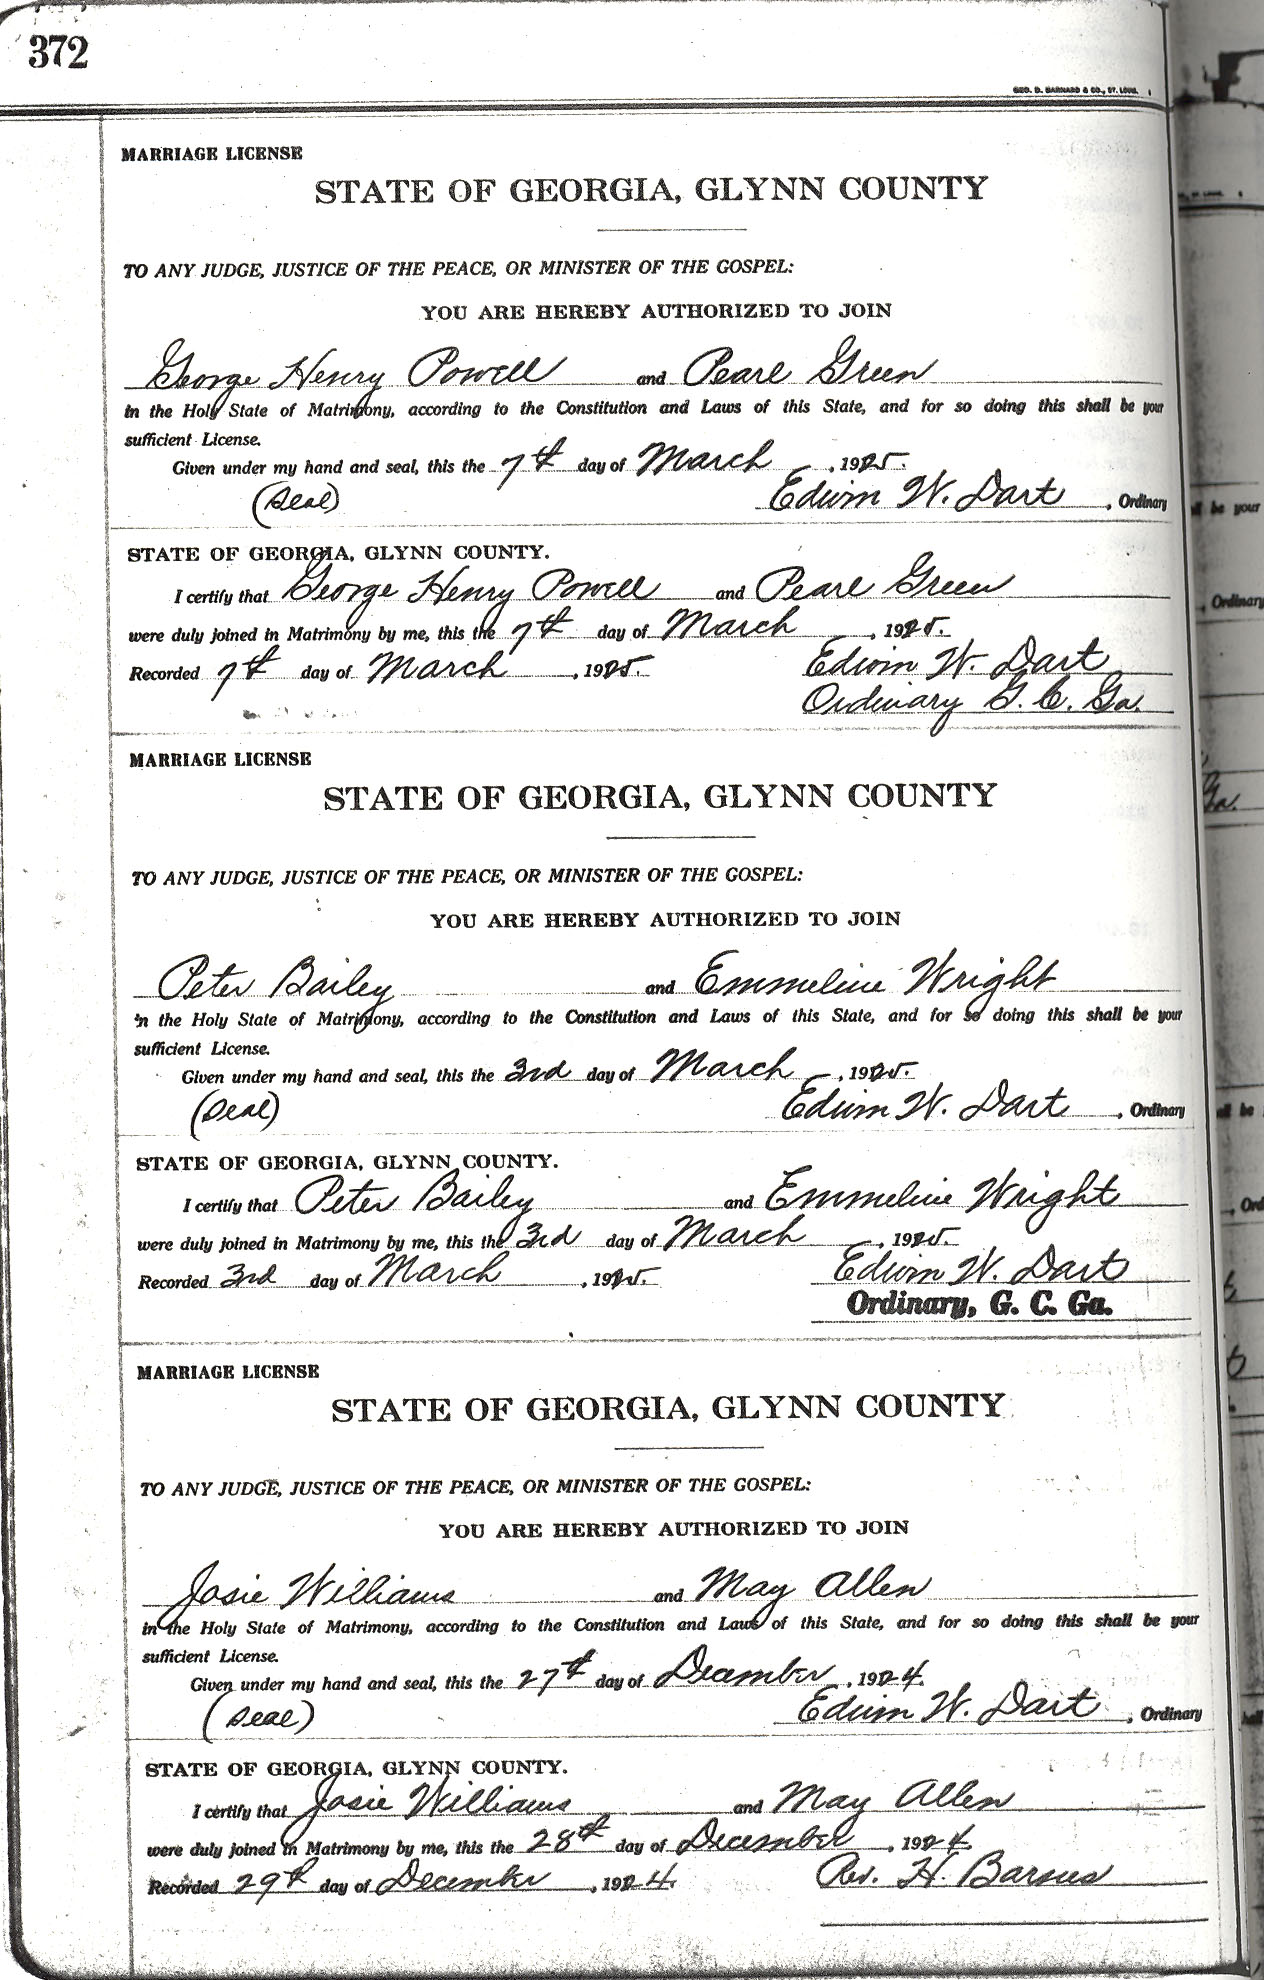 372
GEO. D. BARNARD & CO., ST. LOUIS.
MARRIAGE LICENSE
STATE OF GEORGIA, GLYNN COUNTY
TO ANY JUDGE, JUSTICE OF THE PEACE, OR MINISTER OF THE GOSPEL:
YOU ARE HEREBY AUTHORIZED TO JOIN
George Henry Powell and Pearl Green
in the Holy State of Matrimony, according to the Constitution and Laws of this State, and for so doing this shall be your
sufficient License.
Given under my hand and seal, this the 7th day of March, 1925.
(Seal) Edwin W. Dart, Ordinary
STATE OF GEORGIA, GLYNN COUNTY.
I certify that George Henry Powell and Pearl Green
were duly joined in Matrimony by me, this the 7th day of March, 1925.
Recorded 7th day of March, 1925. Edwin W. Dart
Ordinary G. C. Ga.
MARRIAGE LICENSE
STATE OF GEORGIA, GLYNN COUNTY
TO ANY JUDGE, JUSTICE OF THE PEACE, OR MINISTER OF THE GOSPEL:
YOU ARE HEREBY AUTHORIZED TO JOIN
Peter Bailey and Emmeline Wright
in the Holy State of Matrimony, according to the Constitution and Laws of this State, and for so doing this shall be your
sufficient License.
Given under my hand and seal, this the 3rd day of March, 1925.
(Seal) Edwin W. Dart, Ordinary
STATE OF GEORGIA, GLYNN COUNTY.
I certify that Peter Bailey and Emmeline Wright
were duly joined in Matrimony by me, this the 3rd day of March, 1925.
Recorded 3rd day of March, 1925. Edwin W. Dart
Ordinary, G. C. Ga.
MARRIAGE LICENSE
STATE OF GEORGIA, GLYNN COUNTY
TO ANY JUDGE, JUSTICE OF THE PEACE, OR MINISTER OF THE GOSPEL:
YOU ARE HEREBY AUTHORIZED TO JOIN
Josie Williams and May Allen
in the Holy State of Matrimony, according to the Constitution and Laws of this State, and for so doing this shall be your
sufficient License.
Given under my hand and seal, this the 27th day of December, 1924.
(Seal) Edwin W. Dart, Ordinary
STATE OF GEORGIA, GLYNN COUNTY.
I certify that Josie Williams and May Allen
were duly joined in Matrimony by me, this the 28th day of December, 1924.
Recorded 29th day of December, 1924. Rev. H. Barnes